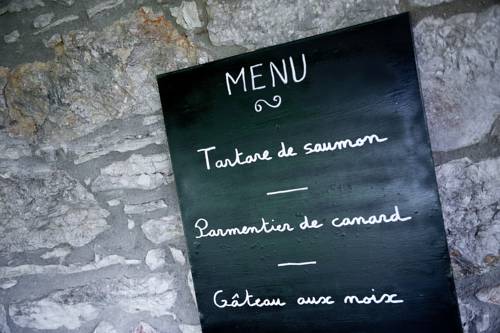 MENU
Tartare de saumon
Parmentier de canard
Gâteau aux noix